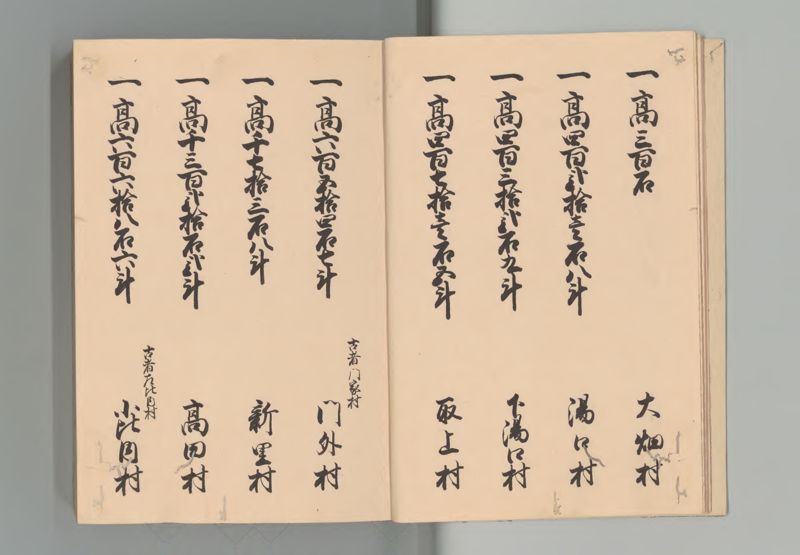 一高三百石 大畑村
一高四百弐拾壱石八斗 湯口村
一高四百三拾弐石九斗 下湯口村
一高四百七拾壱石五斗 取上村
一高六百五拾四石七斗 古者門家村 門外村
一高千七拾三石八斗 新里村
一高千三百弐拾石弐斗 高田村
一高六百六拾八石六斗 小比内村